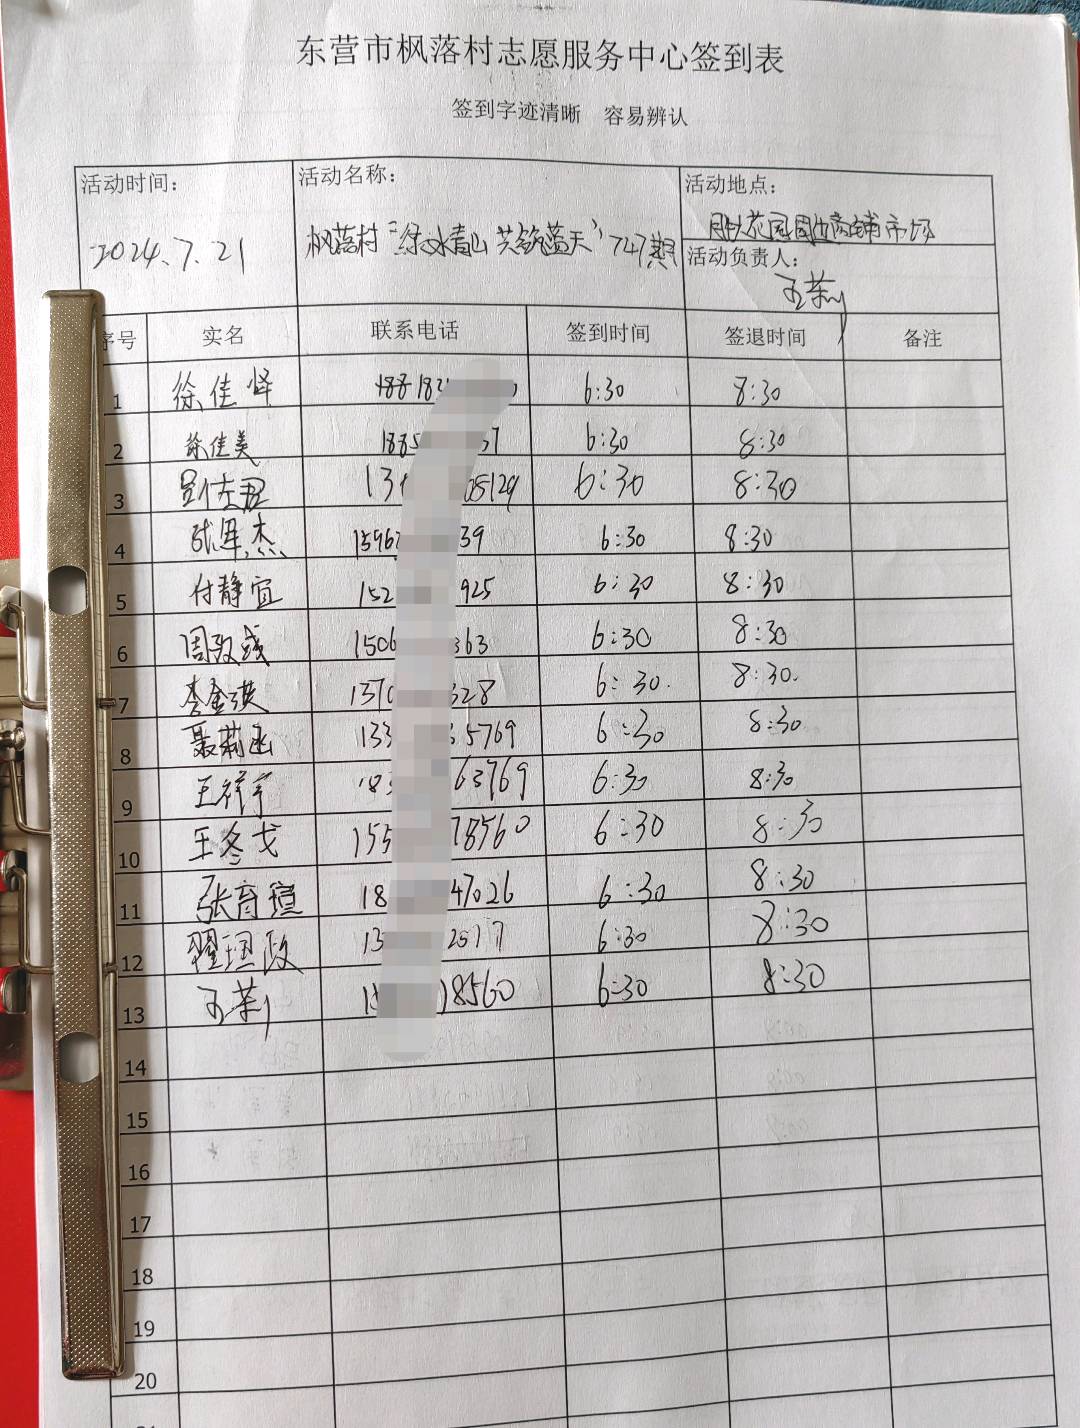 东营市枫落村志愿服务中心签到表
签到字迹清晰 容易辨认
活动时间： 活动名称： 活动地点：
2024.7.21 枫落村“绿水青山 共筑蓝天”747期 花园周边商铺市场
活动负责人：
王荣
序号 实名 联系电话 签到时间 签退时间 备注
1 徐佳怿 188182 6:30 8:30
2 徐佳美 1885 57 6:30 8:30
3 13 08129 6:30 8:30
4 杰 1596 39 6:30 8:30
5 付静宜 152 925 6:30 8:30
6 周致 1506 363 6:30 8:30
7 李金 1370 328 6:30. 8:30.
8 聂莉函 133 5769 6:30 8:30
9 王祥宇 18 63769 6:30 8:30
10 王冬戈 155 18560 6:30 8:30
11 张育瑄 18 47026 6:30 8:30
12 翟 政 13 2577 6:30 8:30
13 王荣 15 18560 6:30 8:30
14
15
16
17
18
19
20